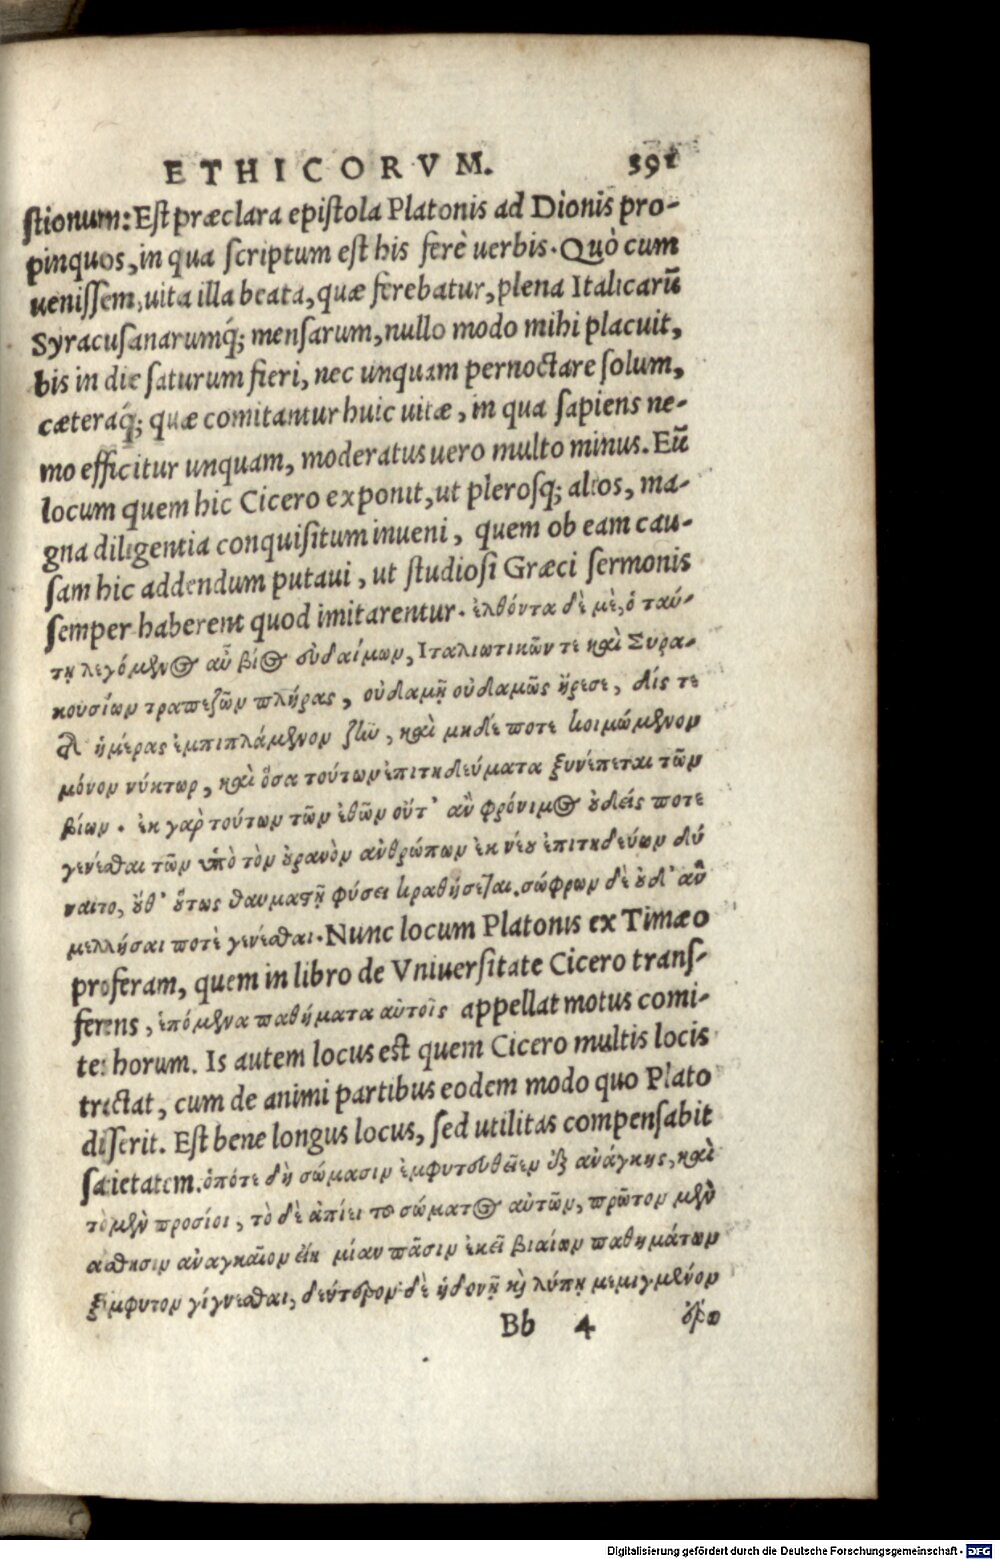 ETHICORVM. 391
ſtionum: Eſt præclara epiſtola Platonis ad Dionis pro-
pinquos, in qua ſcriptum eſt his ferè uerbis. Quò cum
ueniſſem, uita illa beata, quæ ferebatur, plena Italicarũ
Syracuſanarumq́; menſarum, nullo modo mihi placuit,
bis in die ſaturum fieri, nec unquam pernoctare ſolum,
cæteraq́; quæ comitantur huic uitæ, in qua ſapiens ne-
mo efficitur unquam, moderatus uero multo minus. Eũ
locum quem hic Cicero exponit, ut pleroſq; alios, ma-
gna diligentia conquiſitum inueni, quem ob eam cau-
ſam hic addendum putaui, ut ſtudioſi Græci ſermonis
ſemper haberent quod imitarentur. ἐλθόντα δὲ μὲ, ὁ ταύ-
τῃ λεγόμενος αὖ βίος εὐδαίμων, Ιταλιωτικῶν τε καὶ Συρα-
κουσίων τραπεζῶν πλήρας, οὐδαμῇ οὐδαμῶς ἤρεσε, δίς τε
τῆ ἡμέρας ἐμπιπλάμενον ζῆν, καὶ μηδέ ποτε κοιμώμενον
μόνον νύκτωρ, καὶ ὅσα τούτων ἐπιτηδεύματα ξυνέπεται τῶν
βίων. ἐκ γαρ τούτων τῶν ἐθῶν οὔτ' αὖ φρόνιμος οὐδείς ποτε
γενέσθαι τῶν ὑπὸ τὸν οὐρανὸν ἀνθρώπων ἐκ νέου ἐπιτηδεύων δύ
ναιτο, οὐθ' οὕτως θαυμαστῇ φύσει κραθήσεται. σώφρων δὲ οὐδ' αὖ
μελλήσαι ποτὲ γενέσθαι. Nunc locum Platonis ex Timæo
proferam, quem in libro de Vniuerſitate Cicero tranſ-
ferens, ἑπόμενα παθήματα αὐτοῖς appellat motus comi-
tes horum. Is autem locus eſt quem Cicero multis locis
tractat, cum de animi partibus eodem modo quo Plato
diſſerit. Eſt bene longus locus, ſed utilitas compenſabit
ſatietatem. ὁπότε δὴ σώμασιν ἐμφυτευθεῖεν ἐξ ἀνάγκης, καὶ
τὸ μὲν προσίοι, τὸ δὲ ἀπίει το σώματος αὐτῶν, πρῶτον μὲν
αἴσθησιν ἀναγκαῖον εἴη μίαν πᾶσιν ἐκεῖ βιαίων παθημάτων
ξύμφυτον γίγνεσθαι, δεύτερον δὲ ἡδονῇ καὶ λύπῃ μεμιγμένον
Bb 4